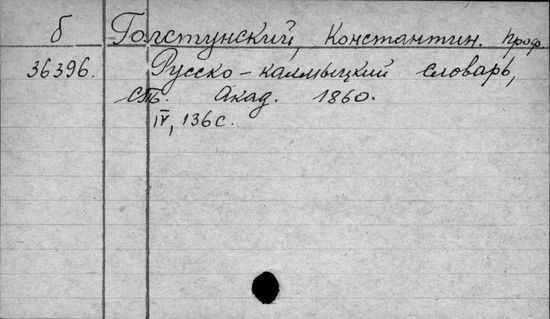 б Голстунский, Константин. проф.
36396. Русско-калмыцкий словарь,
СПб. Акад. 1860.
IV, 136 с.